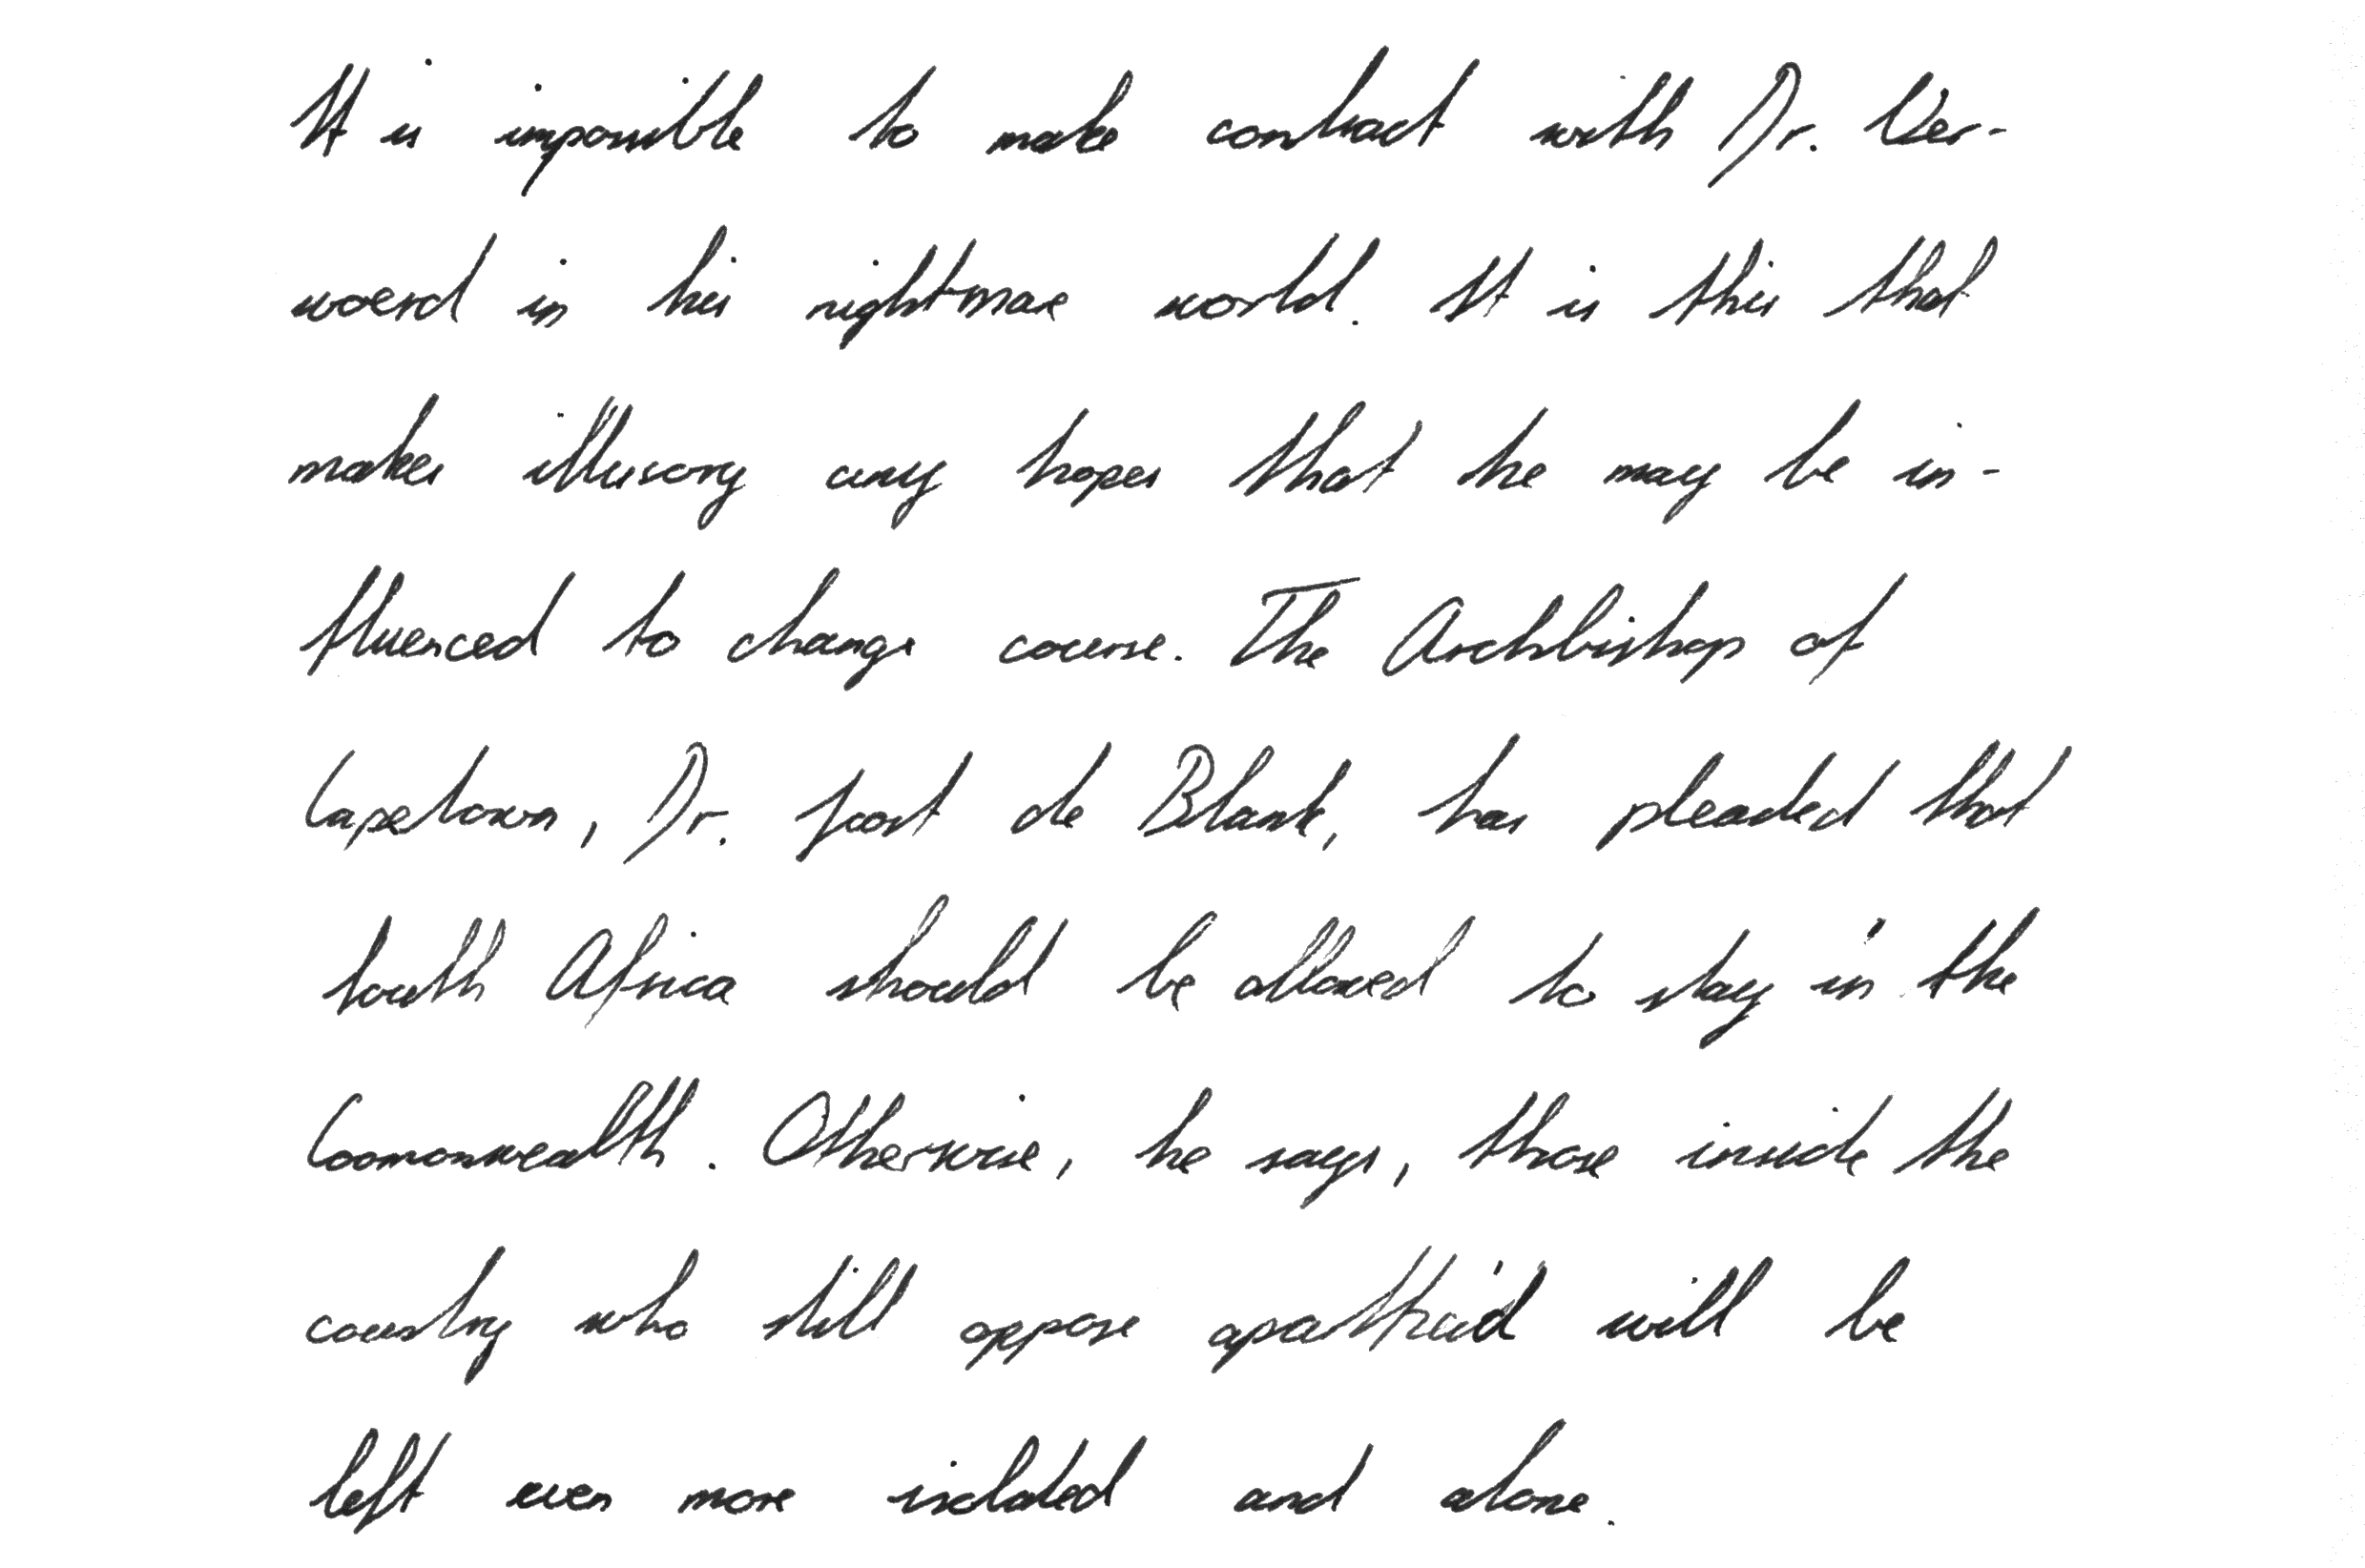 It is impossible to make contract with Dr. Ver-
woerd in his nightmare world. It is this that
makes illusory any hopes that he may be in-
fluenced to change course. The Archbishop of
Capetown, Dr. Joost de Blank, has pleaded that
South Africa should be allowed to stay in the
Commonwealth. Otherwise, he says, those inside the
country who still oppose apartheid will be
left even more isolated and alone.